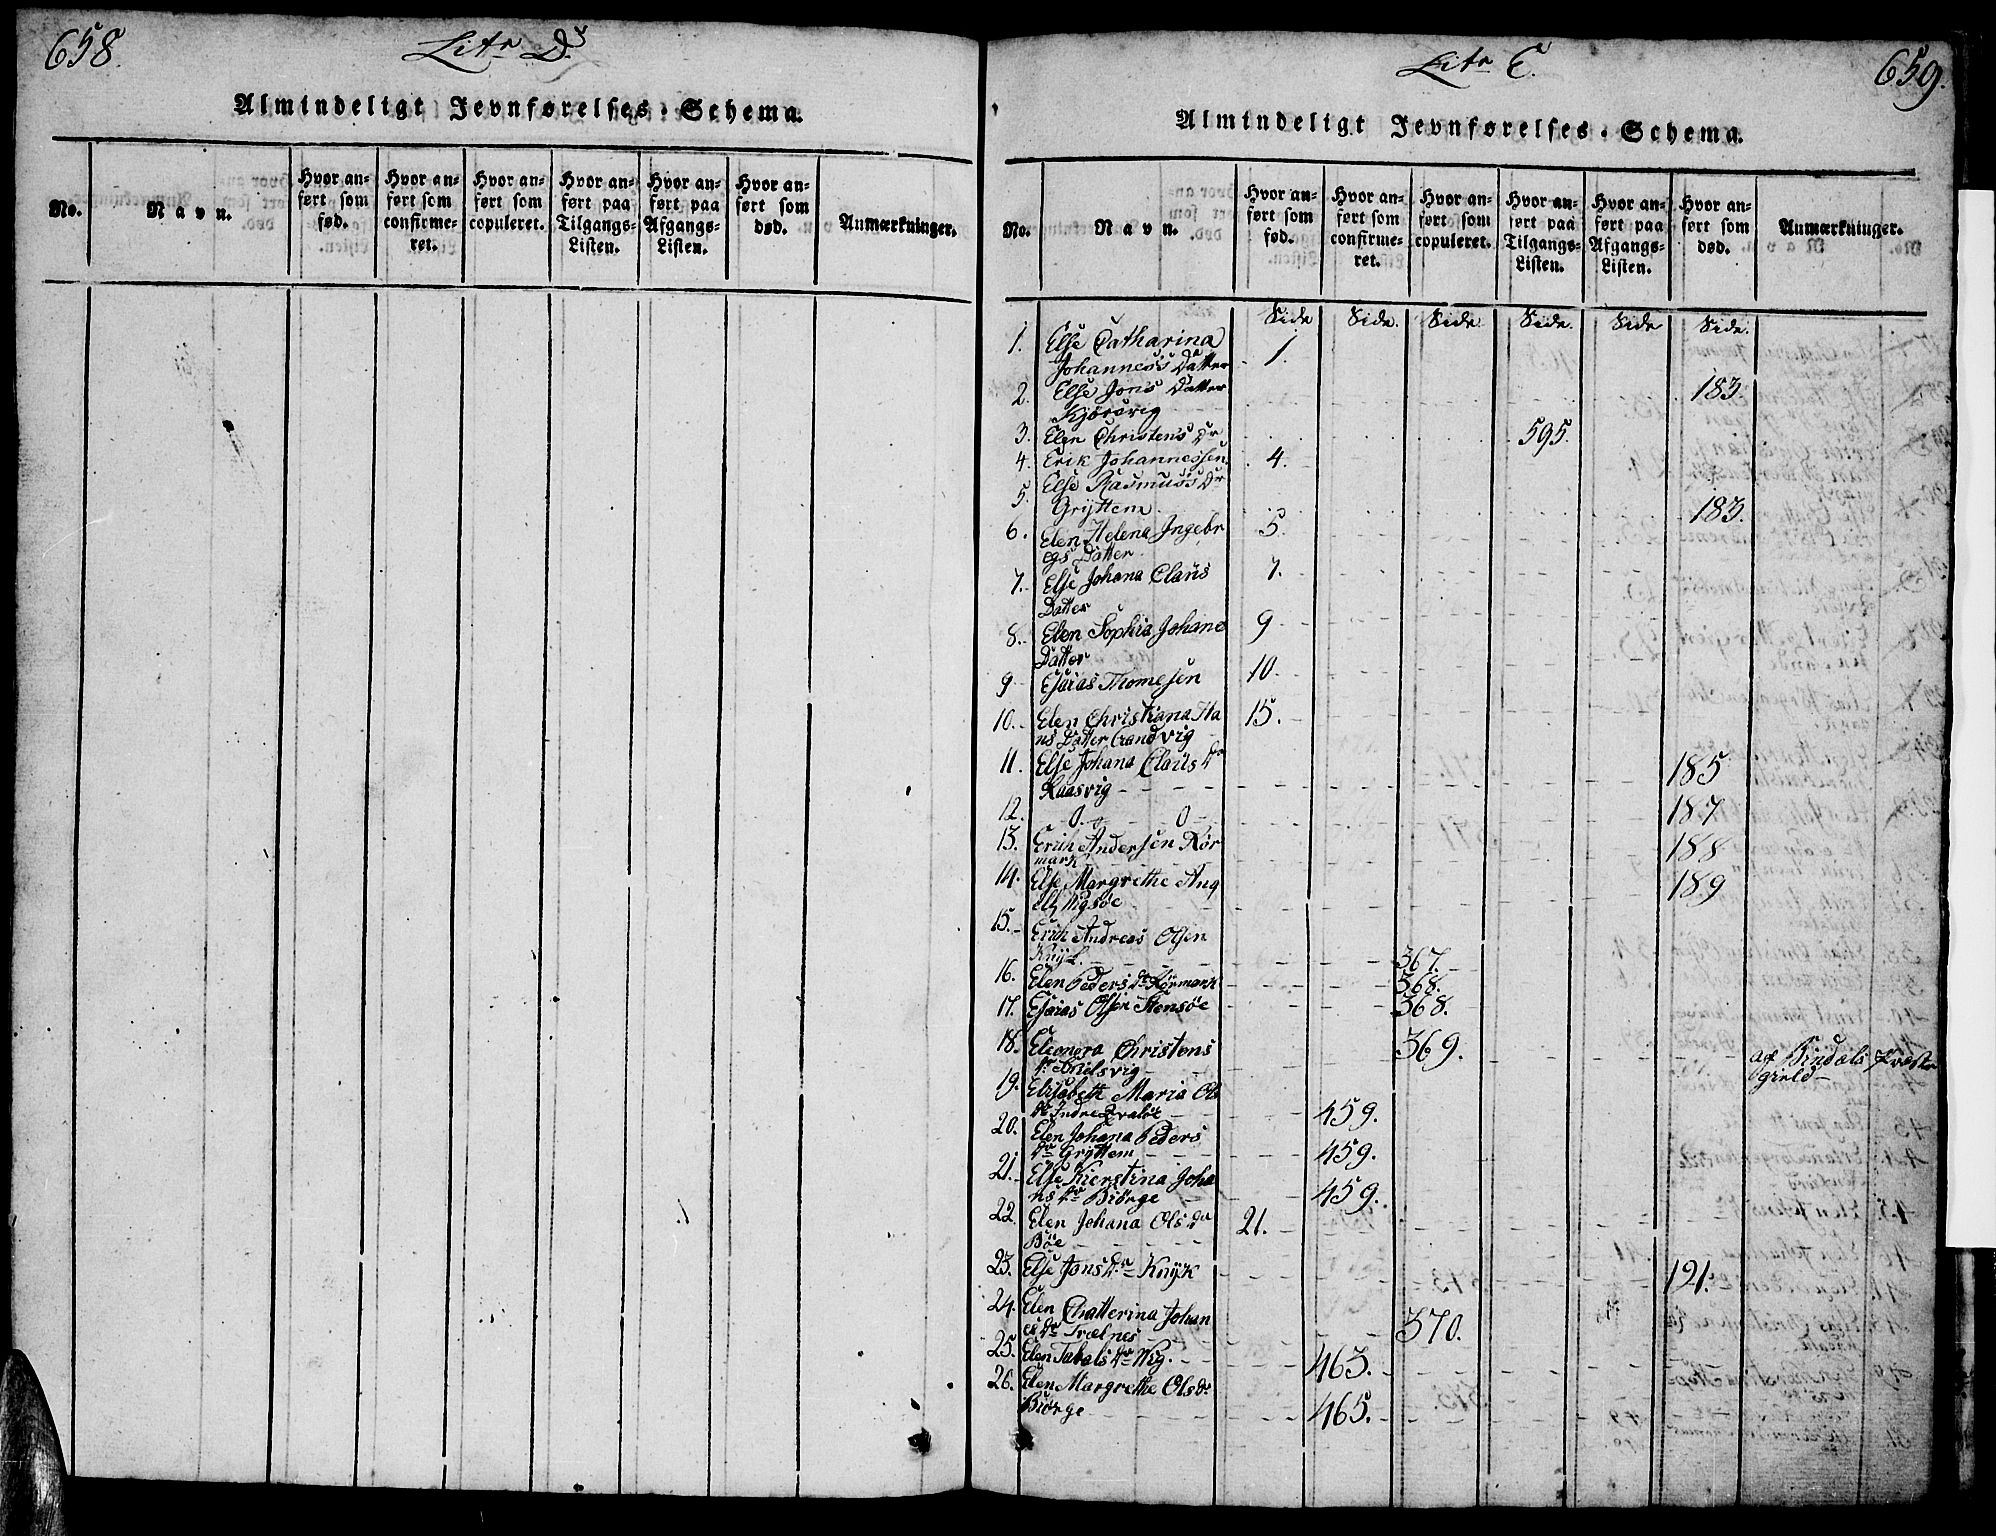 658.
Litr D.
Almindeligt Jevnførelses-Schema.
No.
Navn.
Hvor an-
ført som
fød.
Hvor an-
ført som
confirme-
ret.
Hvor an-
ført som
copuleret.
Hvor an-
ført paa
Tilgangs-
Listen.
Hvor an-
ført paa
Afgangs-
Listen.
Hvor an-
ført som
død.
Anmærkninger.
Litr E.
659.
Almindeligt Jevnførelses-Schema.
No.
Navn.
Hvor an-
ført som
fød.
Hvor an-
ført som
confirme-
ret.
Hvor an-
ført som
copuleret.
Hvor an-
ført paa
Tilgangs-
Listen.
Hvor an-
ført paa
Afgangs-
Listen.
Hvor an-
ført som
død.
Anmærkninger.
Side Side. Side. Side. Side Side.
1. Else Catharina
Johannes's Datter 1.
2. Else Jons Datter 183.
Kjörsvig
3. Elen Christens Dr 595.
4. Erik Johannessen 4.
5. Else Rasmus's Dr
Gryttem 183.
6. Elen Helena Ingebr 5.
egs Datter
7. Else Johana Claus 7.
Datter
8. Elen Sophia Johane 9
Datter
9 Esaias Thomesen 10.
10. Elen Christiana Ha 15.
ns Datter Crandvig
11. Else Johana Claus Dr 185
Kaasvig
12. 0. 0 187
13. Erich Andersen Kör 188
mark
14. Else Margrethe Ang 189
Vigsöe
15. Erich Andreas Olsen
Knÿk 367.
16. Elen Peders Dr Körmark 368.
17. Esaias Olsen Stensöe 368.
18. Eleonora Christens 369. af Bindals Præste
Dr gield
19. Elisabeth Maria Ols
Dr Indre Qvaløe 459.
20. Elen Johana Peders
Dr Gryttem 459.
21. Else Kierstina Joha
ns Dr Biörge 459.
22. Elen Johana Ols Dr 21.
Böe
23. Else Jons Dr Knÿk 191.
24. Elen Chatterina Johan
es Dr Trælnes 370.
25. Elen Tabals Dr Wiig. 463.
26. Elen Margrethe Ols Dr
Biörge 465.